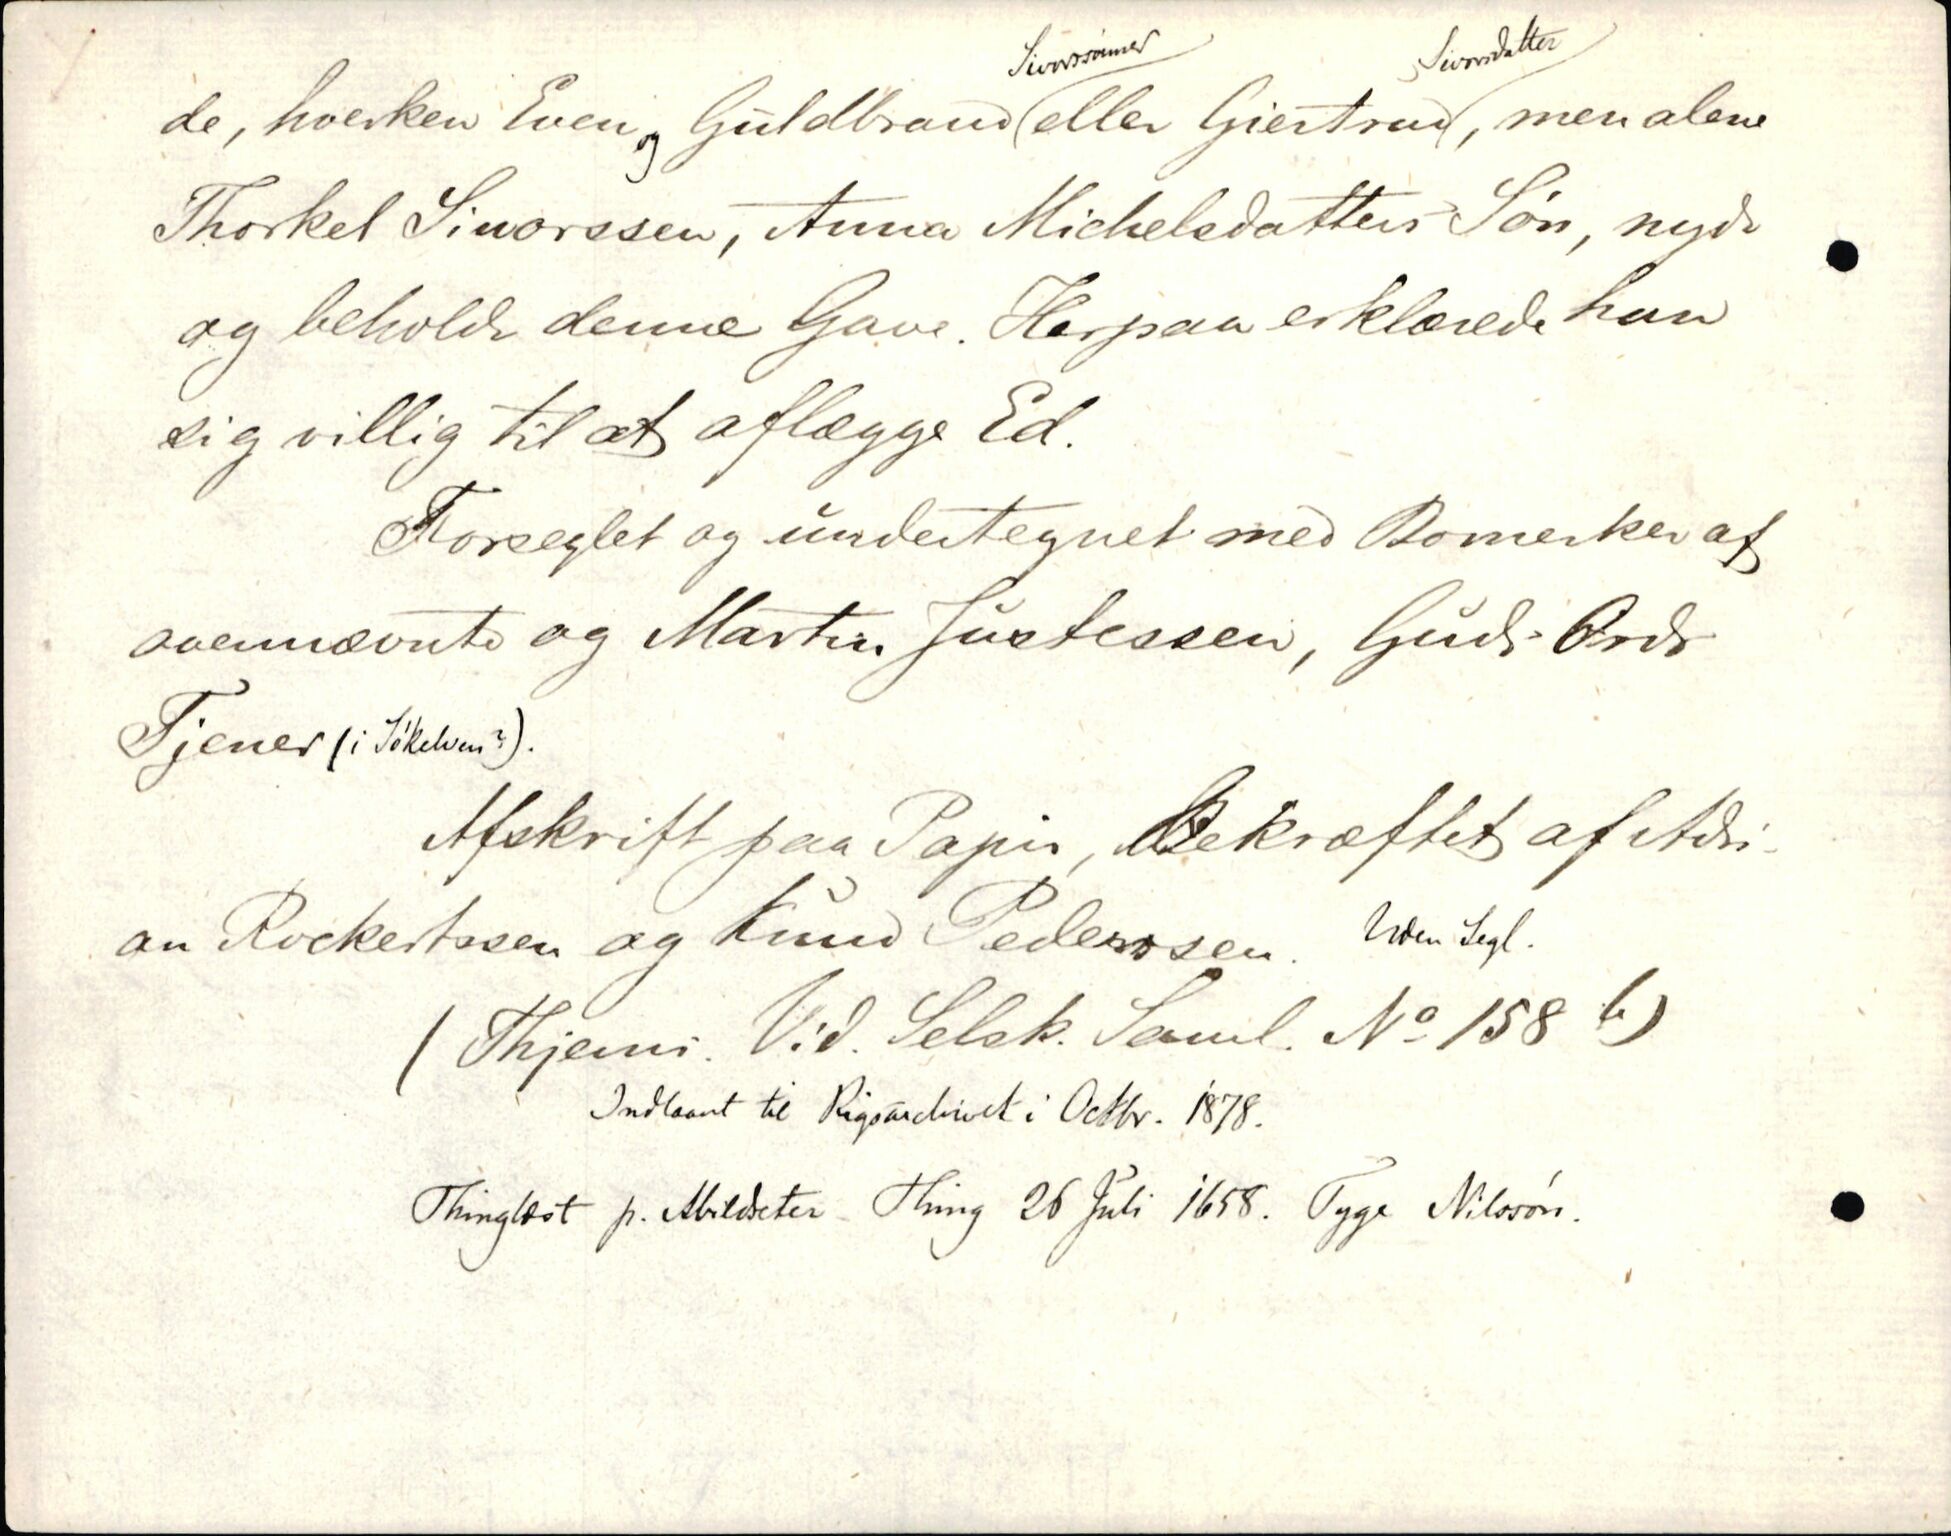 de, hverken Even og Guldbrand Sivorssønner eller Giertrud Sivorsdatter, men alene
Thorkel Sivorssen, Anna Michelsdatters Søn, nyde
og beholde denne Gave. Herpaa erklærede han
sig villig til at aflægge Ed.
Forseglet og undertegnet med Bomerker af
ovennævnte og Martin Justessen, Guds Ords
Tjener (i Sökelven?).
Afskrift paa Papir, Bekræftet af Adri-
an Rockertssen og Knud Pederssen. Uden Segl.
(Thjems. Vid. Selsk. Saml. No 158 b)
Indlaant til Rigsarchivet i Octbr. 1878.
Thinglæst p. Abildseter Thing 26 Juli 1658. Tyge Nilssøn.